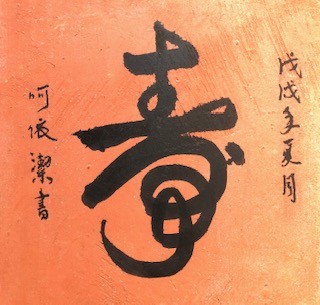 戊戌年夏月
壽
呵依潔書